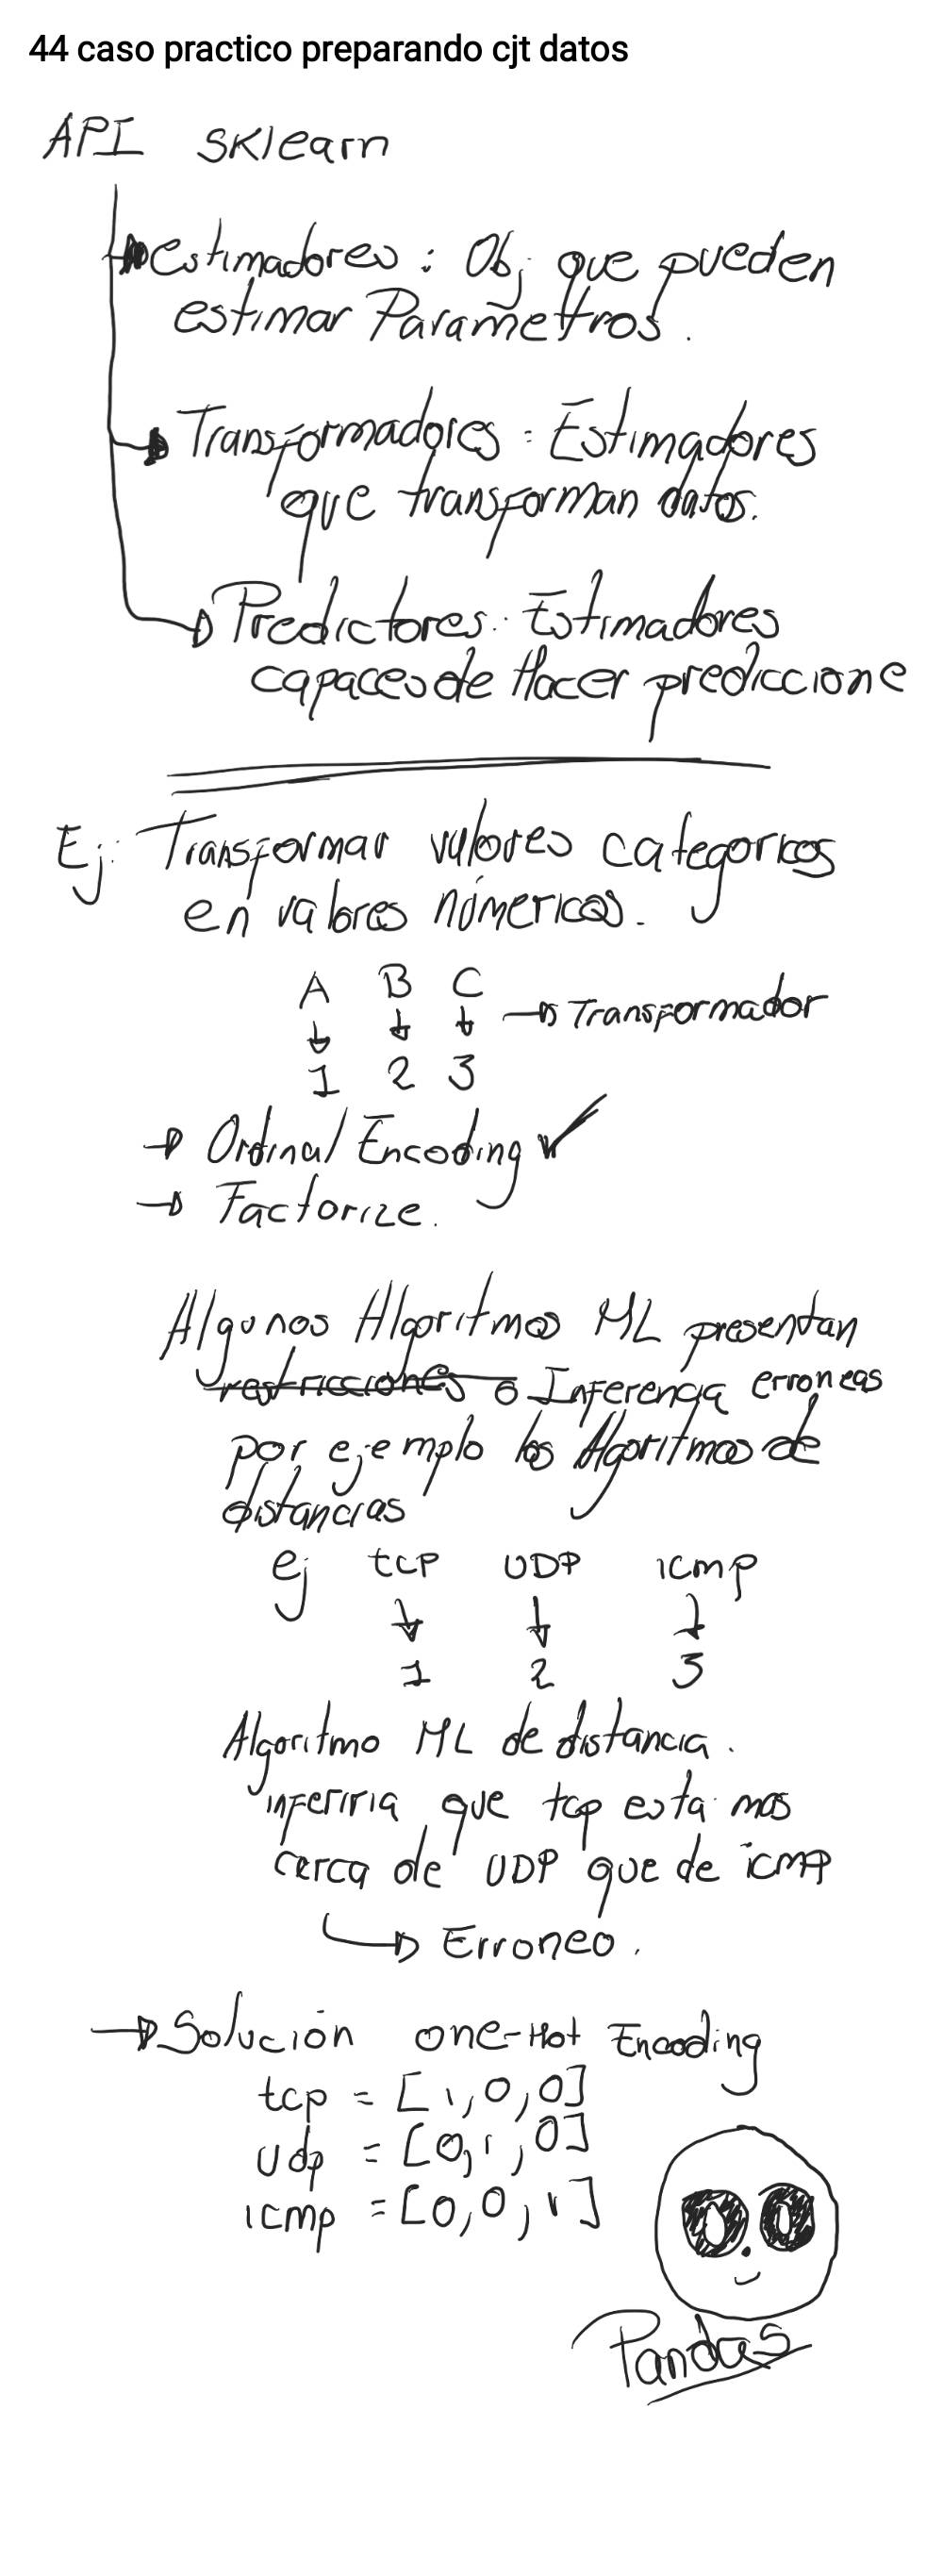 44 caso practico preparando cjt datos
API sklearn
estimadores : Obj que pueden
estimar Parametros.
Transformadores : Estimadores
que transforman datos.
Predictores : Estimadores
capaces de Hacer prediccione
Ej: Transformar valores categoricos
en valores númericos.
A B C → Transformador
↓ ↓ ↓
1 2 3
→ Ordinal Encoding ✓
→ Factorize.
Algunos Algoritmos ML presentan
restricciones o Inferencia erroneas
por ejemplo los Algoritmos de
distancias
ej tcp UDP icmp
↓ ↓ ↓
1 2 3
Algoritmo ML de distancia.
inferiria que tcp esta mas
cerca de UDP que de icmp
→ Erroneo.
→ Solución one-Hot Encoding
tcp = [1,0,0]
udp = [0,1,0]
icmp = [0,0,1]
Pandas